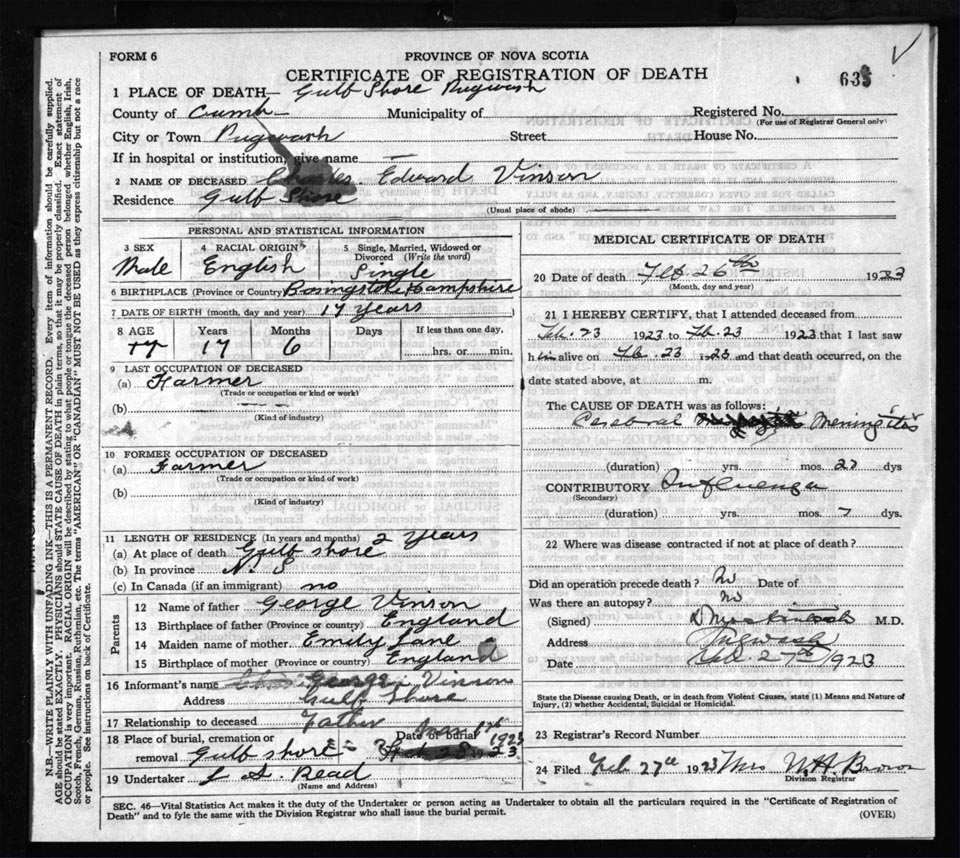 FORM 6
PROVINCE OF NOVA SCOTIA
CERTIFICATE OF REGISTRATION OF DEATH
1 PLACE OF DEATH— Gulf Shore Pugwash
County of Cumb— Municipality of Registered No.
(For use of Registrar General only)
City or Town Pugwash Street House No.
If in hospital or institution, give name —
2 NAME OF DECEASED Charles Edward Vinson
Residence Gulf Shore
(Usual place of abode)
PERSONAL AND STATISTICAL INFORMATION
3 SEX 4 RACIAL ORIGIN 5 Single, Married, Widowed or Divorced (Write the word)
Male English Single
6 BIRTHPLACE (Province or Country) Basingstoke Hampshire
7 DATE OF BIRTH (month, day and year) 17 years
8 AGE Years Months Days If less than one day,
17 6 hrs. or min.
9 LAST OCCUPATION OF DECEASED
(a) Farmer
(Trade or occupation or kind or work)
(b)
(Kind of industry)
10 FORMER OCCUPATION OF DECEASED
(a) Farmer
(Trade or occupation or kind of work)
(b)
(Kind of industry)
11 LENGTH OF RESIDENCE (In years and months) 2 Years
(a) At place of death Gulf shore
(b) In province N. S
(c) In Canada (if an immigrant) no
Parents
12 Name of father George Vinson
13 Birthplace of father (Province or country) England
14 Maiden name of mother Emily Lane
15 Birthplace of mother (Province or country) England
16 Informant's name George Vinson
Address Gulf Shore
17 Relationship to deceased Father
18 Place of burial, cremation or removal Gulf shore Date of burial 1923
19 Undertaker L S. Read
(Name and Address)
MEDICAL CERTIFICATE OF DEATH
20 Date of death Feb. 26th 1923
(Month, day and year)
21 I HEREBY CERTIFY, that I attended deceased from
Feb. 23 1923 to Feb. 23 1923 that I last saw
him alive on Feb. 23 1923 and that death occurred, on the
date stated above, at m.
The CAUSE OF DEATH was as follows:
Cerebral Meningitis
(duration) yrs. mos. 27 dys
CONTRIBUTORY Influenza
(Secondary)
(duration) yrs. mos. 7 dys.
22 Where was disease contracted if not at place of death?
Did an operation precede death? No Date of
Was there an autopsy? No
(Signed) M.D.
Address Pugwash
Date Feb. 27th 1923
State the Disease causing Death, or in death from Violent Causes, state (1) Means and Nature of Injury, (2) whether Accidental, Suicidal or Homicidal.
23 Registrar's Record Number
24 Filed Feb 27th 1923 Mrs W. H. Brown
Division Registrar
SEC. 46—Vital Statistics Act makes it the duty of the Undertaker or person acting as Undertaker to obtain all the particulars required in the "Certificate of Registration of
Death" and to fyle the same with the Division Registrar who shall issue the burial permit.
(OVER)
N.B.—WRITE PLAINLY WITH UNFADING INK—THIS IS A PERMANENT RECORD. Every item of information should be carefully supplied.
AGE should be stated EXACTLY. PHYSICIANS should STATE CAUSE OF DEATH in plain terms, so that it may be properly classified. Exact statement of
OCCUPATION is very important. RACIAL ORIGIN will be described by stating to what people or tongue the deceased person belonged whether English, Irish,
Scotch, French, German, Russian, Ruthenian, etc. The terms "AMERICAN" OR "CANADIAN" MUST NOT BE USED as they express citizenship but not a race
or people. See instructions on back of Certificate.